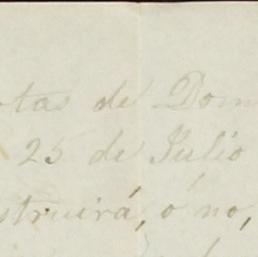 otas de Dom
25 de Julio
struirá, ó no,